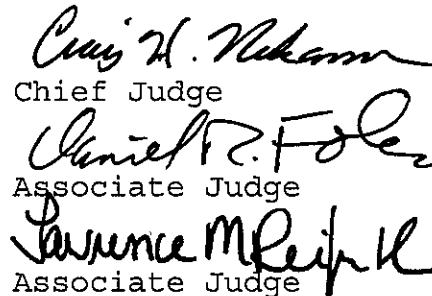 Craig H. Nakamura
Chief Judge
Daniel R. Foley
Associate Judge
Lawrence M
Associate Judge